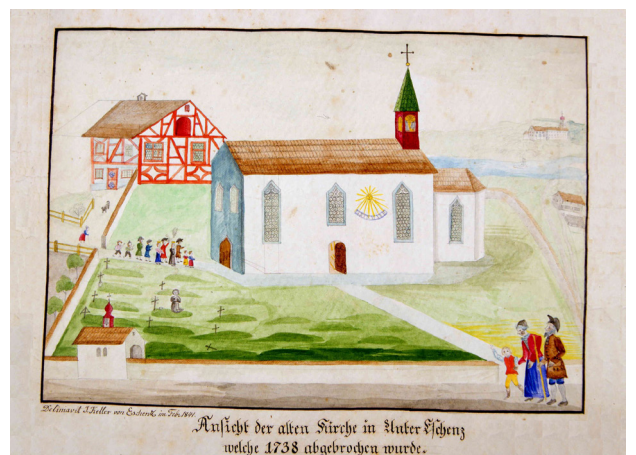 Delineavit J. Keller von Eschenz im Feb.
Ansicht der alten Kirche in Unter Eschenz
welche 1738 abgebrochen wurde.